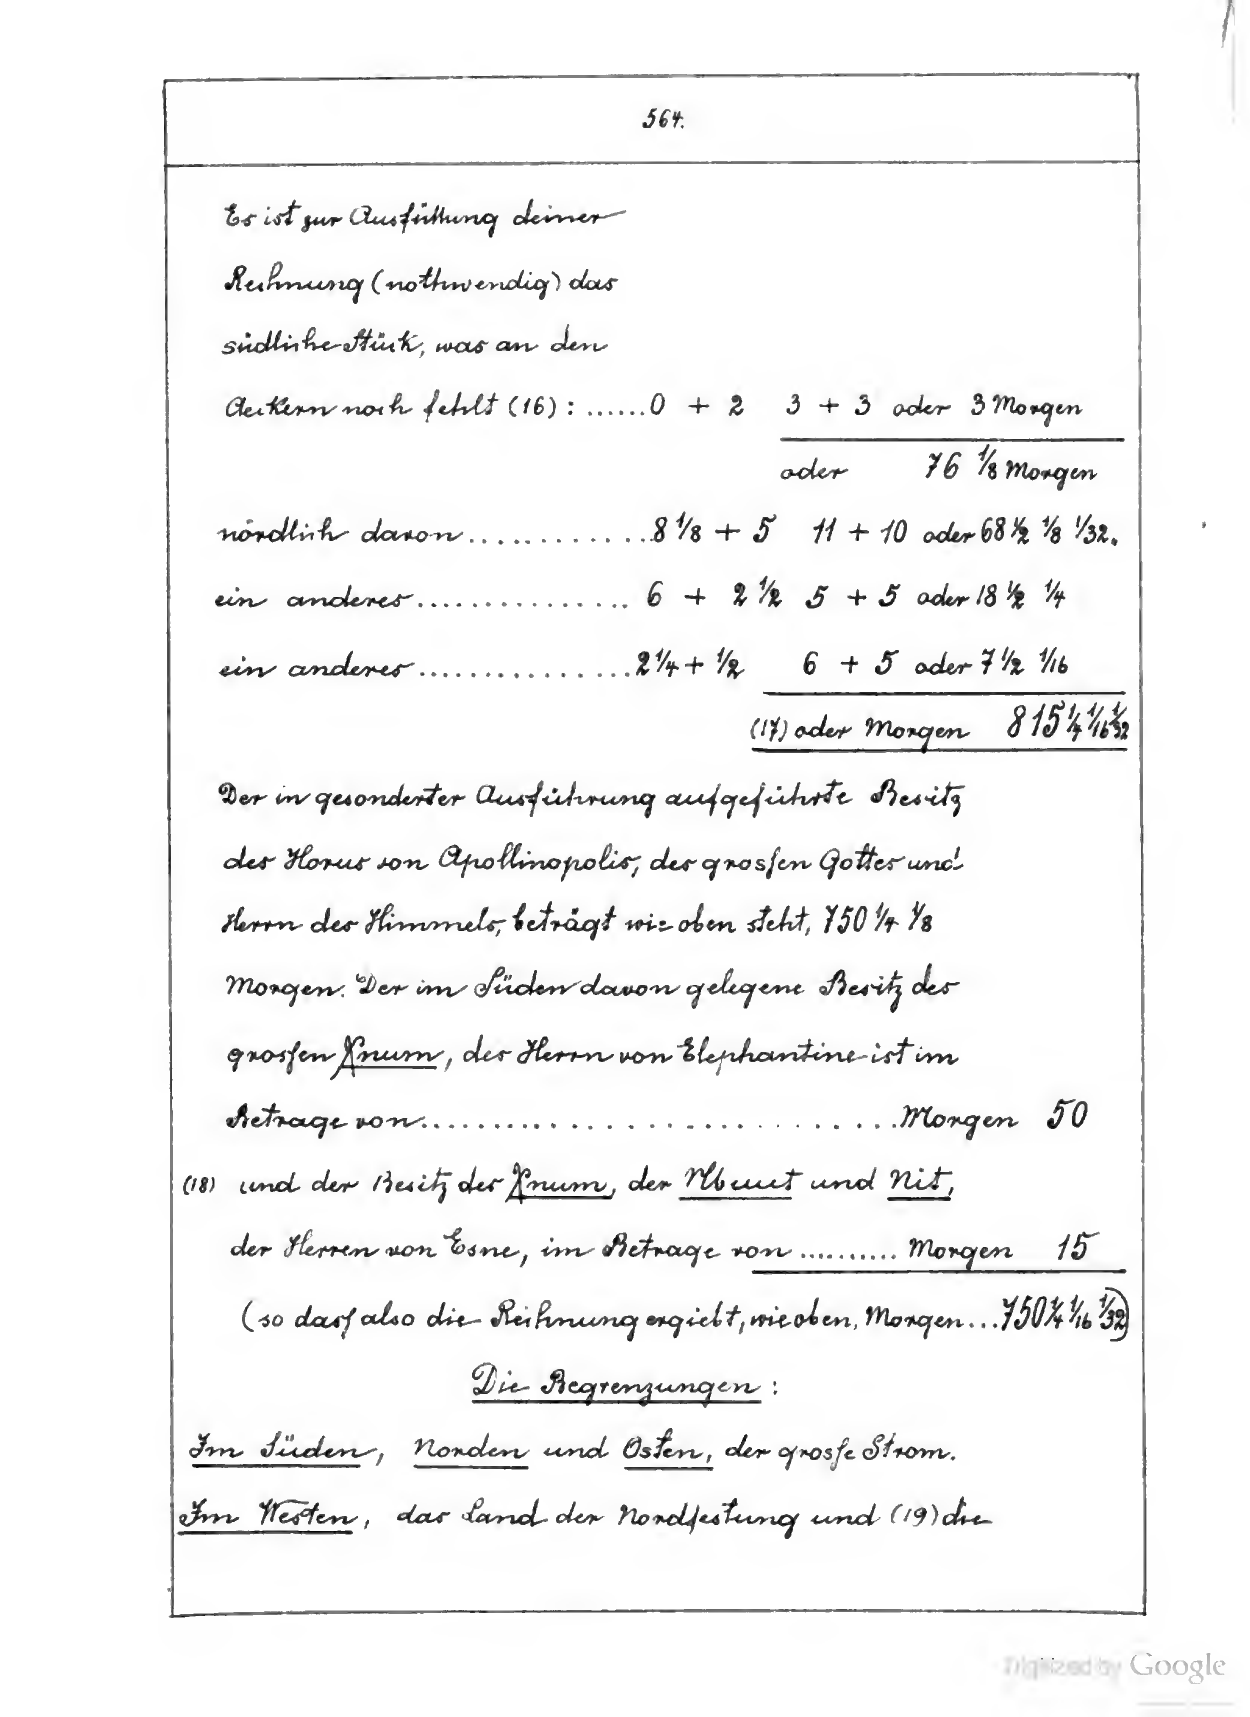 564.
Es ist zur Ausfüllung deiner
Rechnung (nothwendig) das
südliche Stück, was an den
Aeckern noch fehlt (16) : ......0 + 2 3 + 3 oder 3 Morgen
oder 76 1/8 Morgen
nördlich davon.............8 1/8 + 5 11 + 10 oder 68 1/2 1/8 1/32.
ein anderes............... 6 + 2 1/2 5 + 5 oder 18 1/2 1/4
ein anderes...............2 1/4 + 1/2 6 + 5 oder 7 1/2 1/16
(17) oder Morgen 815 1/4 1/16 1/32
Der in gesonderter Ausführung aufgeführte Besitz
des Horus von Apollinopolis, des grossen Gottes und
Herrn des Himmels, beträgt wie oben steht, 750 1/4 1/8
Morgen. Der im Süden davon gelegene Besitz des
grossen Xnum, des Herrn von Elephantine ist im
Betrage von..............................Morgen 50
(18) und der Besitz des Xnum, der und Nit,
der Herren von Esne, im Betrage von .......... Morgen 15
(so dass also die Rechnung ergiebt, wie oben, Morgen...750 1/4 1/16 1/32)
Die Begrenzungen :
Im Süden, Norden und Osten, der grosse Strom.
Im Westen, das Land der Nordfestung und (19) die
Digitized by Google